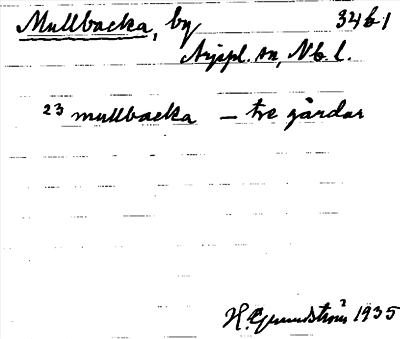 Mullbacka, by 32b1
Arjepl. sn, Nb. l.
23 mullbacka — tre gårdar
H. Grundström 1935